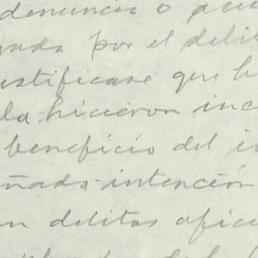 denuncia o acu
gada por el delit
ustificase que h
la hicieron inc
beneficio del i
ñada intención
en delitos ofici